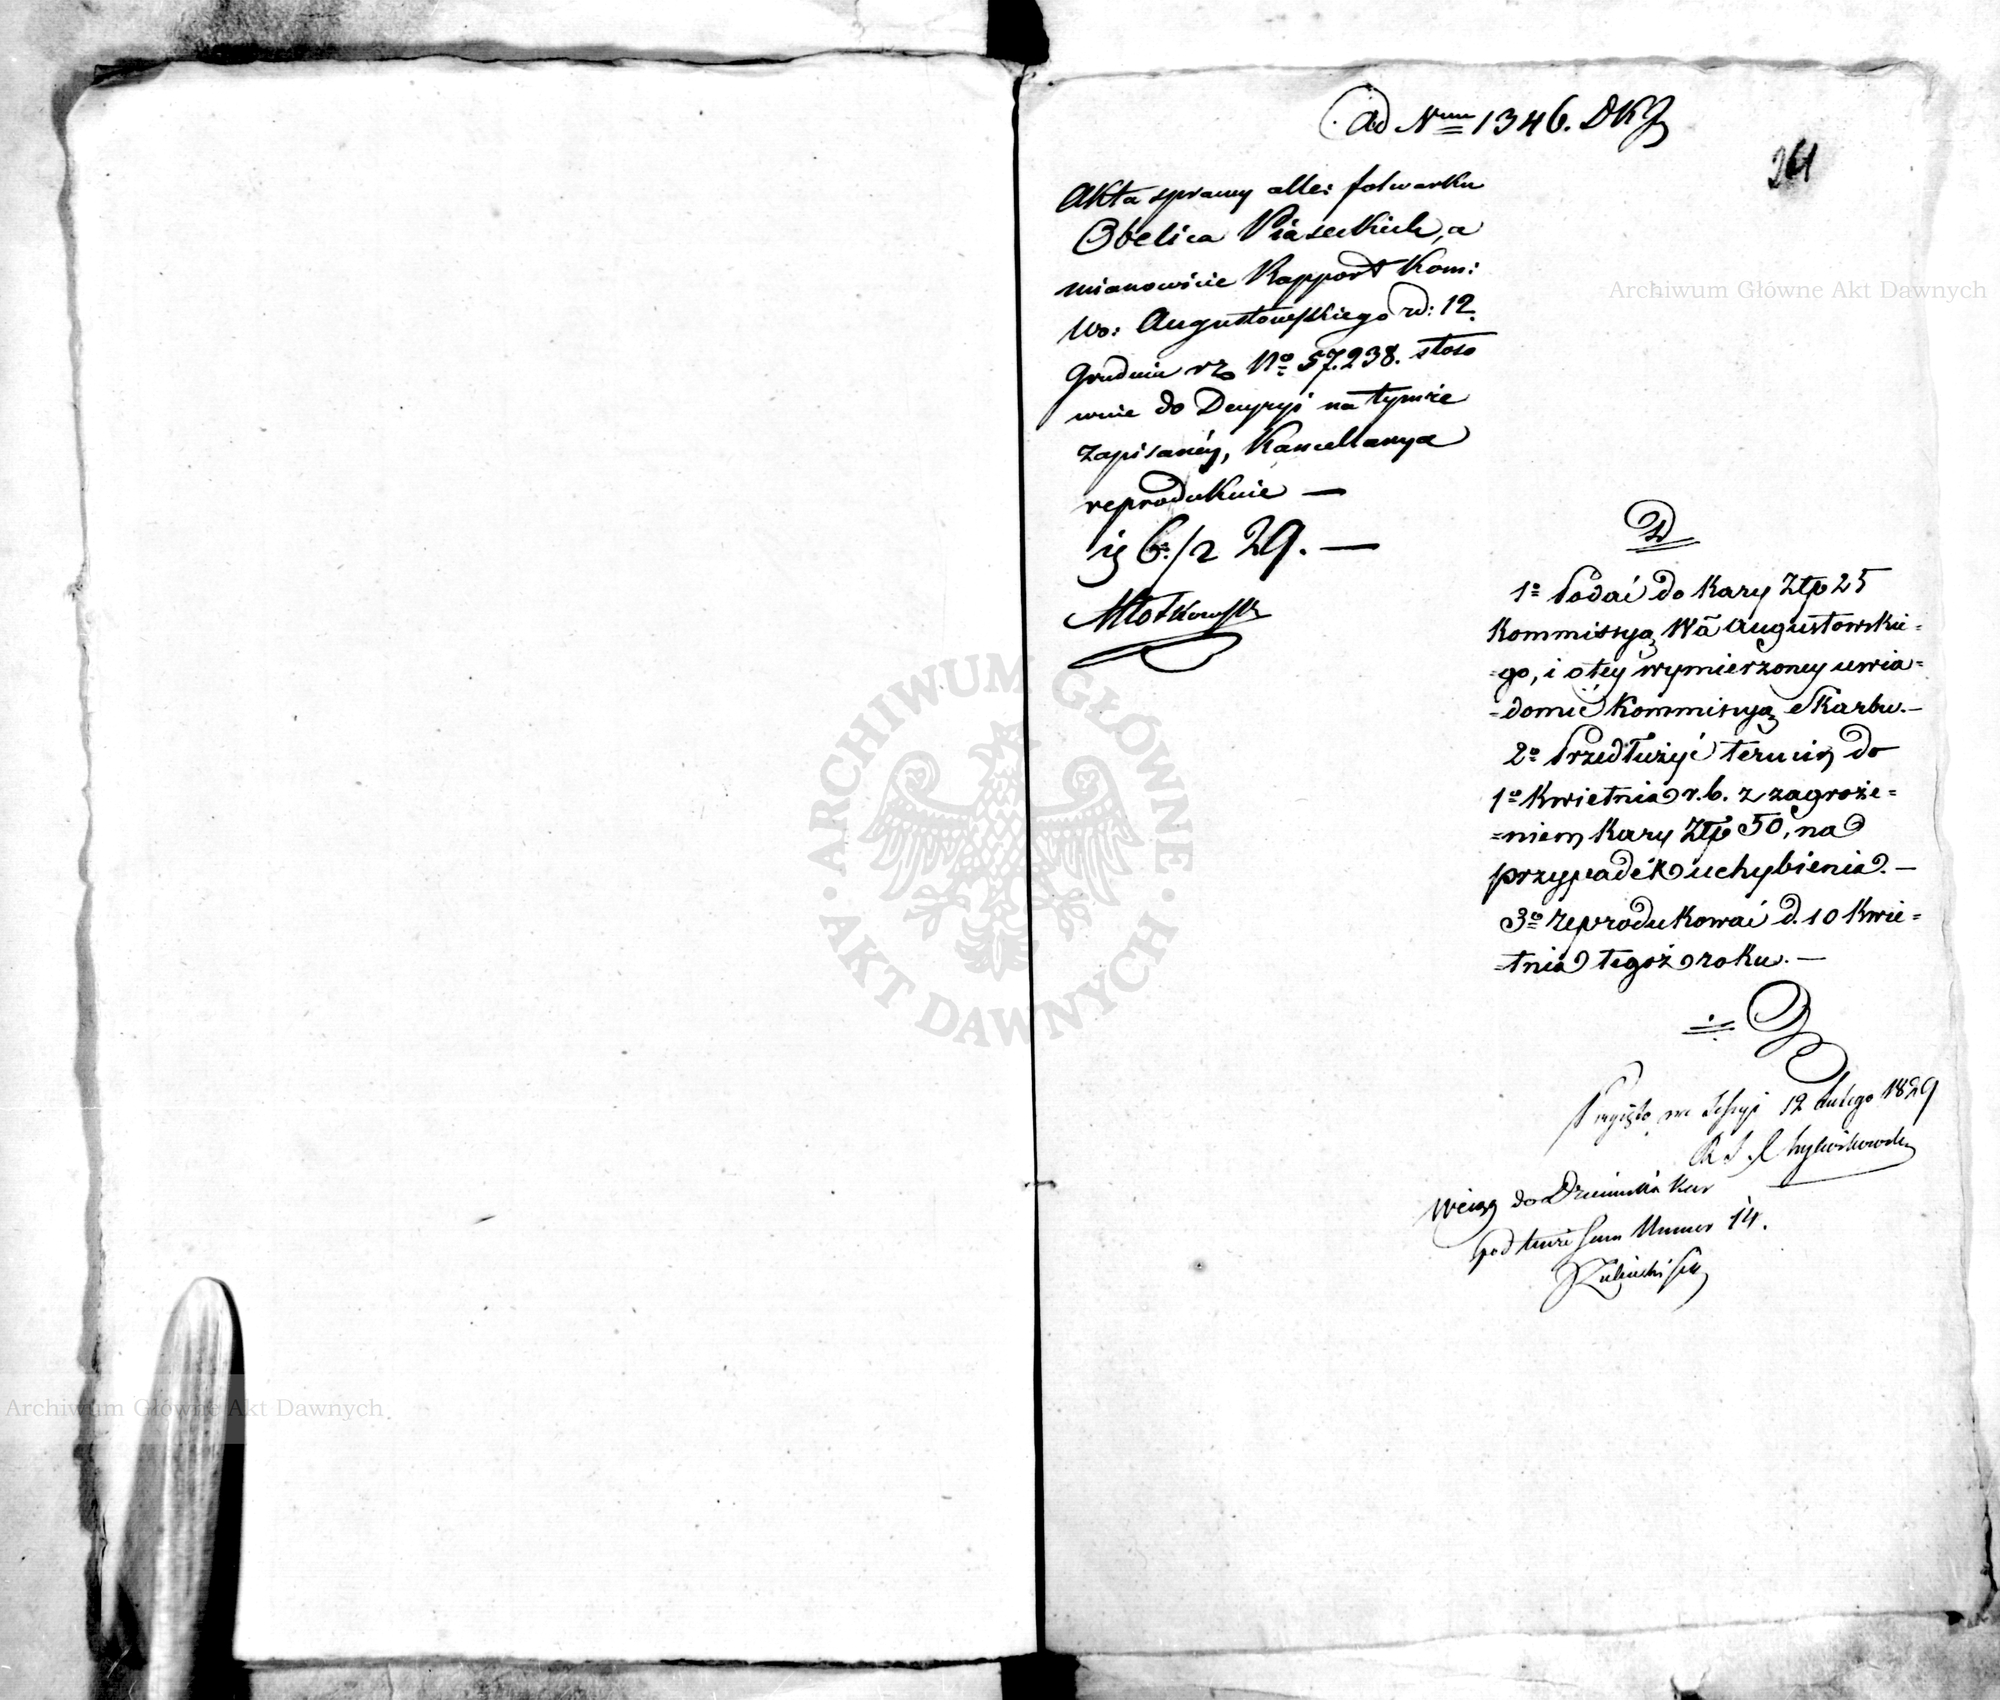 ad Num 1346. DKJ
261
Akta sprawy alle: folwarku
Obelica Piaseckich, a
mianowicie Rapport Kom:
Wo: Augustowskiego zd: 12.
Grudnia rz No 57.238. stoso
wnie do Decyzyi na tymże
zapisanéy, Kancellarya
reprodukuie —
29. —
Młotkowski
D
1o Podać do kary Złp 25
Kommissyą Wa Augustowskie=
=go, i o tey wymierzoney uwia=
=domić Kommissyą Skarbu.—
2o Przedłużyć termin do
1o Kwietnia r. b. z zagroże=
=niem kary Złp 50, na
przypadek uchybienia.—
3o reprodukować d. 10 Kwie=
=tnia tegoż roku.—
Przyięto na Sessyi 12 Lutego 1829
Wciągn do Dziennika Kar
pod tymże sam Numer 14.
ARCHIWUM GŁÓWNE
· AKT DAWNYCH ·
Archiwum Główne Akt Dawnych
Archiwum Główne Akt Dawnych